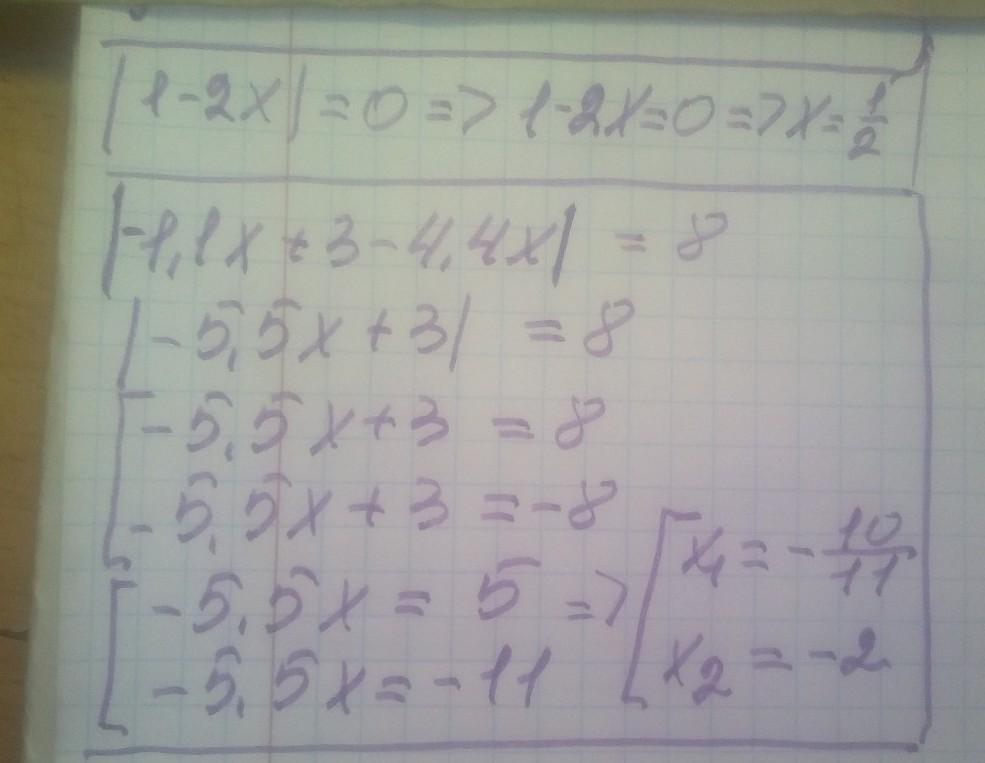 |1-2x| = 0 => 1-2x=0 => x=1/2
|-1,1x+3-4,4x| = 8
|-5,5x+3| = 8
[-5,5x+3 = 8
-5,5x+3 = -8
[-5,5x = 5 => [x1 = -10/11
-5,5x = -11 x2 = -2